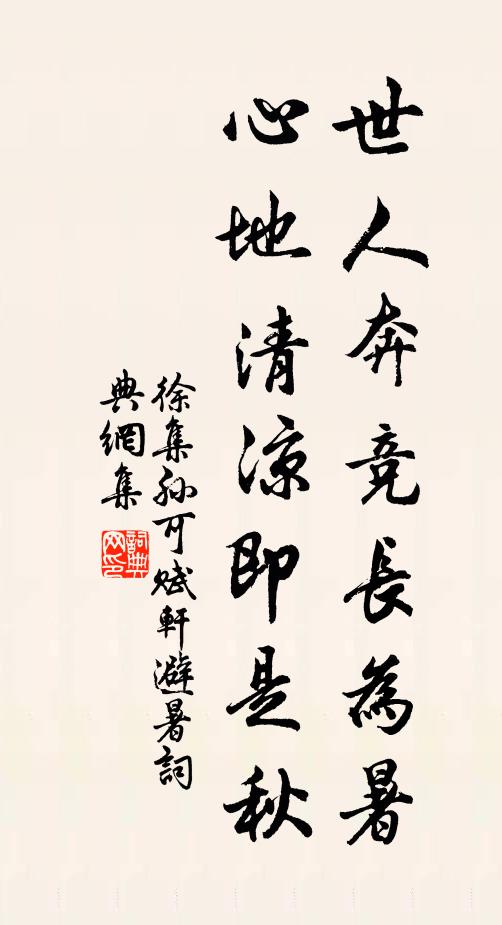 世人奔竞長為暑
心地清凉即是秋
徐集孙可賦軒避暑詞
典網集
詞典网印